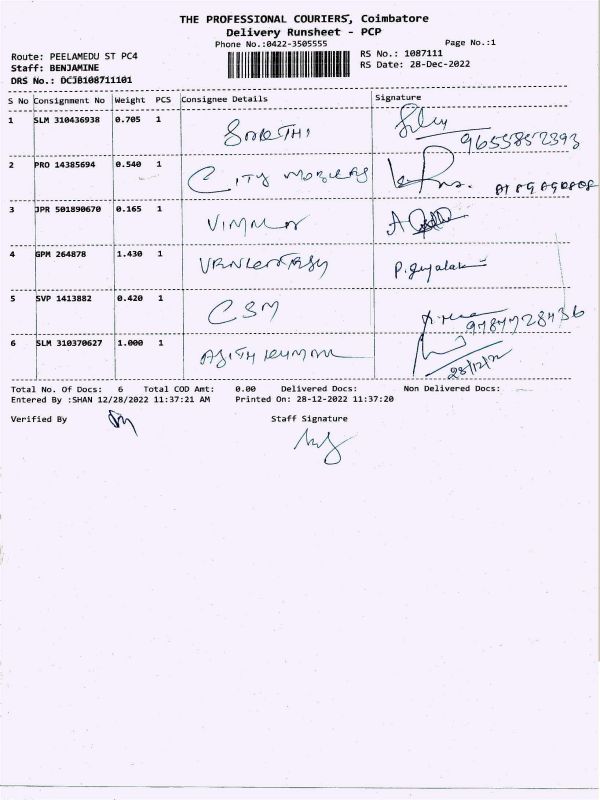 THE PROFESSIONAL COURIERS, Coimbatore
Delivery Runsheet - PCP
Phone No.:0422-3505555
Page No.:1
Route: PEELAMEDU ST PC4
RS No.: 1087111
Staff: BENJAMINE
RS Date: 28-Dec-2022
DRS No.: DCJB108711101
S No Consignment No Weight PCS Consignee Details Signature
1 SLM 310436938 0.705 1
9655852393
2 PRO 14385694 0.540 1 CITY MOBILES
3 JPR 501890670 0.165 1 VIMAL
4 GPM 264878 1.430 1
5 SVP 1413882 0.420 1 CSM
9787728436
6 SLM 310370627 1.000 1 AJITH KUMAR
28/12/22
Total No. Of Docs: 6 Total COD Amt: 0.00 Delivered Docs: Non Delivered Docs:
Entered By :SHAN 12/28/2022 11:37:21 AM Printed On: 28-12-2022 11:37:20
Verified By Staff Signature